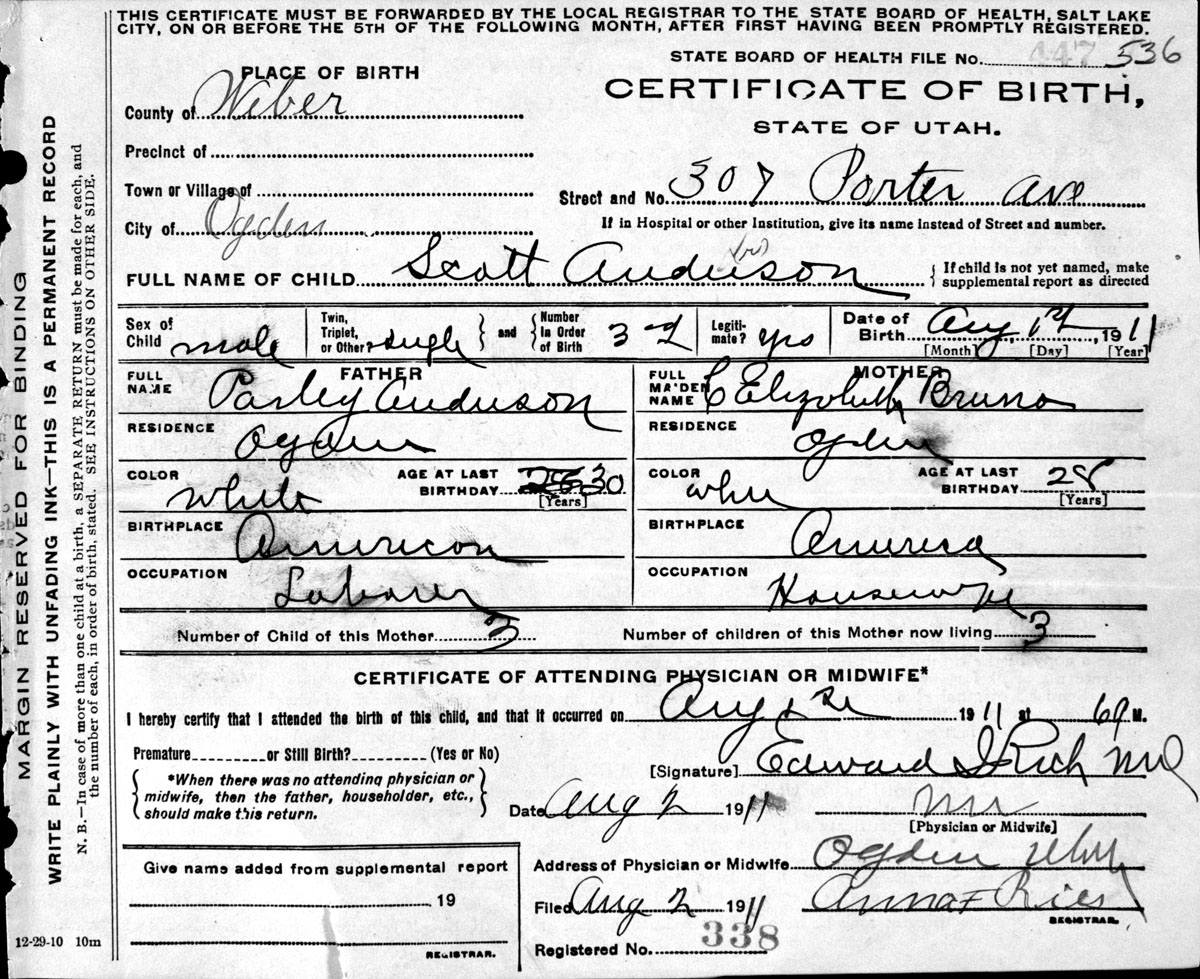 THIS CERTIFICATE MUST BE FORWARDED BY THE LOCAL REGISTRAR TO THE STATE BOARD OF HEALTH, SALT LAKE
CITY, ON OR BEFORE THE 5TH OF THE FOLLOWING MONTH, AFTER FIRST HAVING BEEN PROMPTLY REGISTERED.
STATE BOARD OF HEALTH FILE No. 447 536
PLACE OF BIRTH
CERTIFICATE OF BIRTH,
STATE OF UTAH.
County of Weber
Precinct of
Town or Village of
Street and No. 307 Porter Ave
City of Ogden
If in Hospital or other Institution, give its name instead of Street and number.
FULL NAME OF CHILD Scott Anderson
If child is not yet named, make
supplemental report as directed
Sex of Child male
Twin, Triplet, or Other? single
and
Number In Order of Birth 3rd
Legiti-mate? yes
Date of Birth Aug, 1st, 1911
[Month] [Day] [Year]
FATHER
FULL NAME Parley Anderson
RESIDENCE Ogden
COLOR White
AGE AT LAST BIRTHDAY 30
[Years]
BIRTHPLACE American
OCCUPATION Laborer
MOTHER
FULL MAIDEN NAME C Elizabeth Bruno
RESIDENCE Ogden
COLOR White
AGE AT LAST BIRTHDAY 28
[Years]
BIRTHPLACE America
OCCUPATION Housewife
Number of Child of this Mother 3
Number of children of this Mother now living 3
CERTIFICATE OF ATTENDING PHYSICIAN OR MIDWIFE*
I hereby certify that I attended the birth of this child, and that it occurred on Aug 1st 1911 at 6 M.
Premature or Still Birth? (Yes or No)
*When there was no attending physician or
midwife, then the father, householder, etc.,
should make this return.
[Signature] Edward I Rich MD
Date Aug 2 1911
[Physician or Midwife]
Give name added from supplemental report
19
REGISTRAR.
Address of Physician or Midwife Ogden Utah
Filed Aug 2 1911
REGISTRAR.
Registered No. 338
MARGIN RESERVED FOR BINDING
WRITE PLAINLY WITH UNFADING INK—THIS IS A PERMANENT RECORD
N. B.—In case of more than one child at a birth, a SEPARATE RETURN must be made for each, and
the number of each, in order of birth, stated. SEE INSTRUCTIONS ON OTHER SIDE.
12-29-10 10m